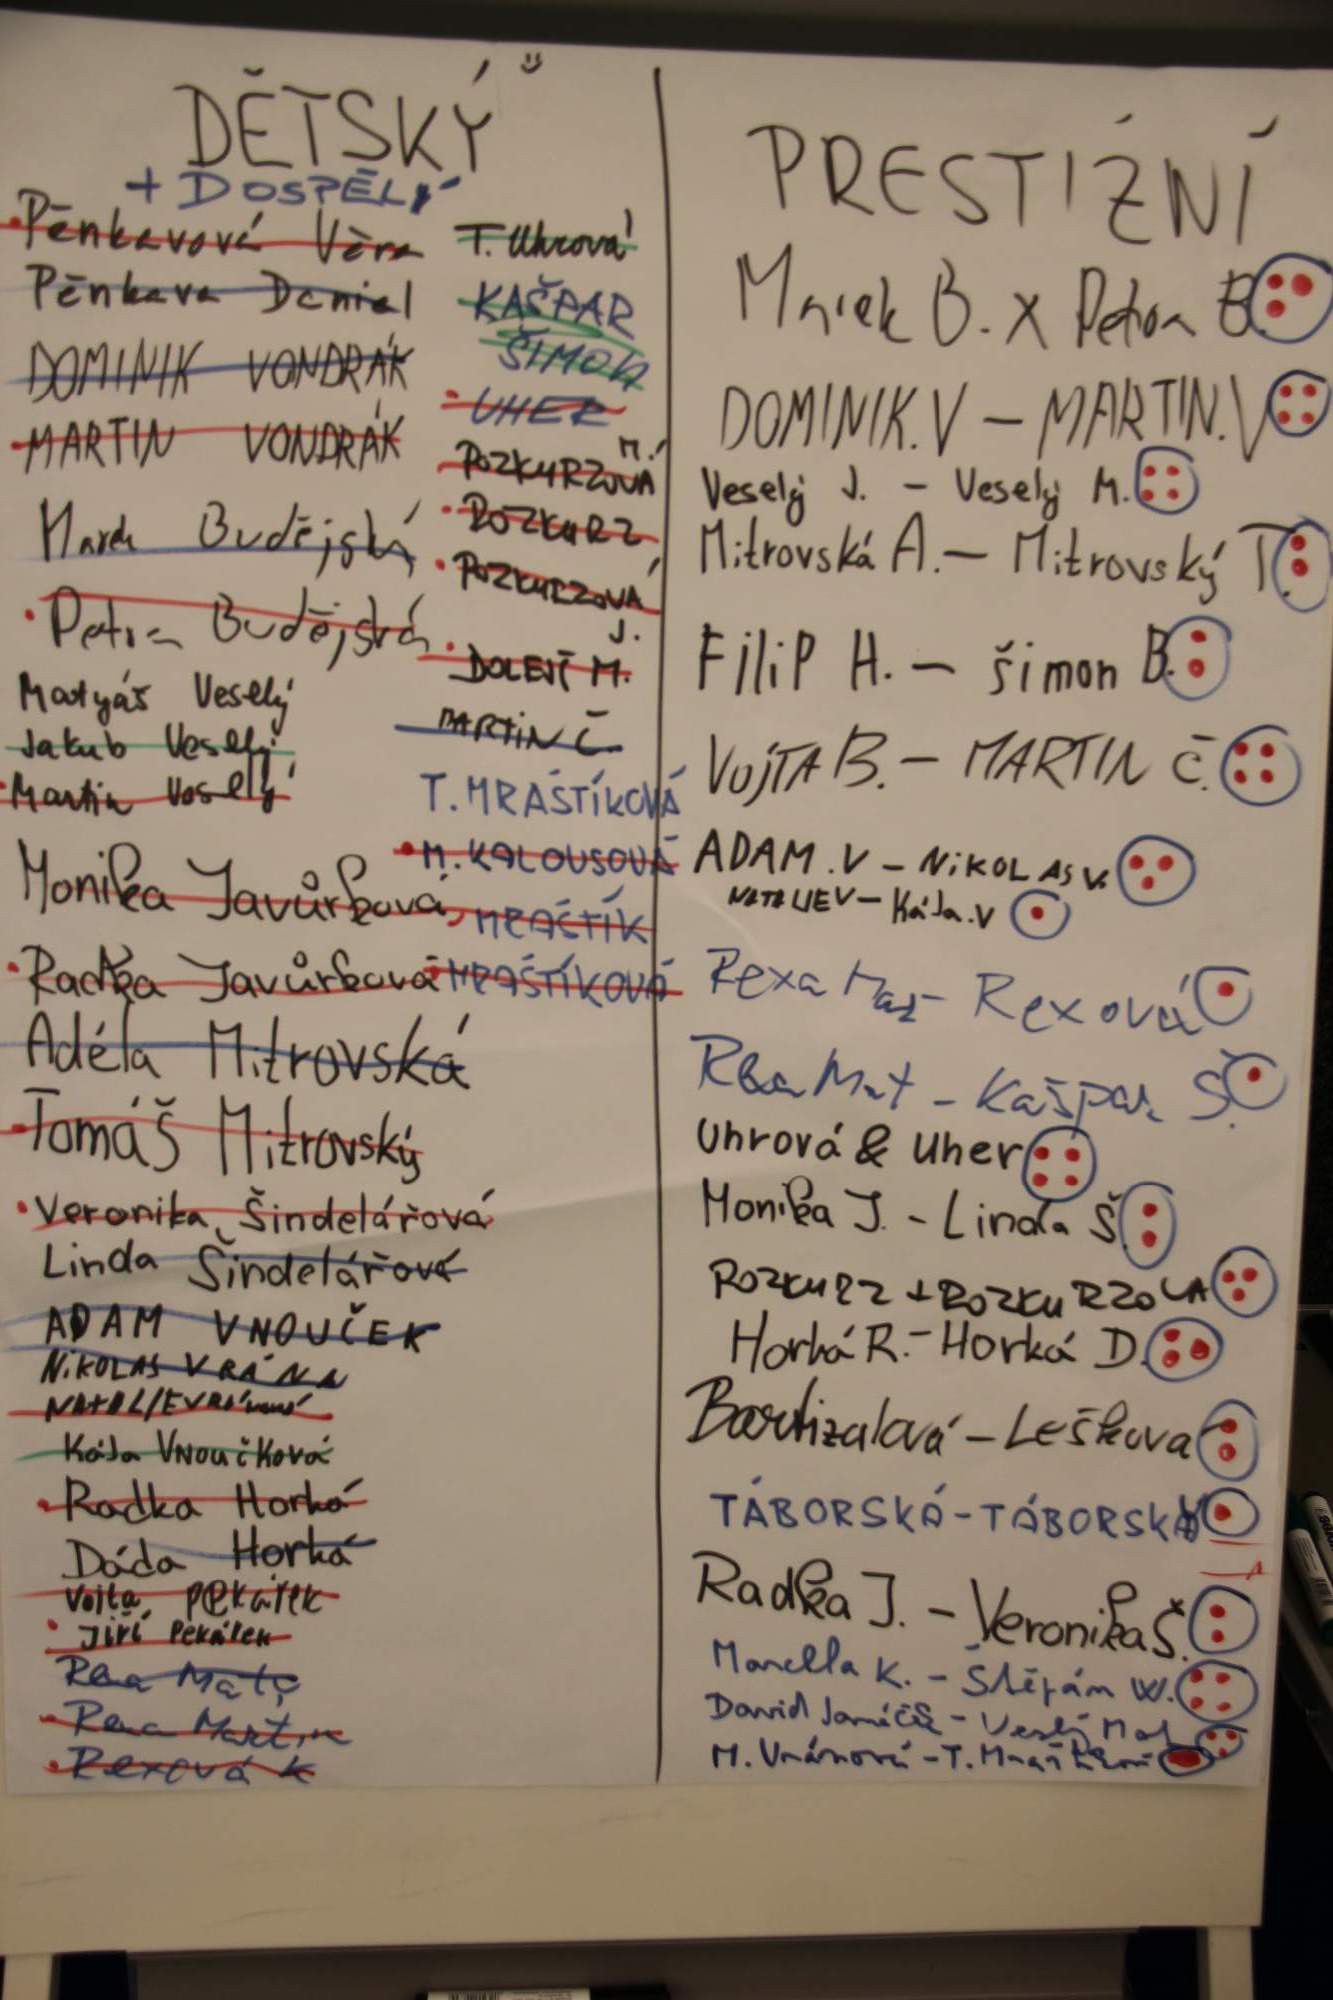 DĚTSKÝ
+ DOSPĚLÝ
Pěnkavová Věra
Pěnkava Daniel
DOMINIK VONDRÁK
MARTIN VONDRÁK
Marek Budějský
Petra Budějská
Matyáš Veselý
Jakub Veselý
Martin Veselý
Monika Javůrková
Radka Javůrková
Adéla Mitrovská
Tomáš Mitrovský
Veronika Šindelářová
Linda Šindelářová
ADAM VNOUČEK
NIKOLAS VRÁNA
Kája VNOUČKOVÁ
Radka Horká
Dáda Horká
Vojta PEKÁREK
Jiří PEKÁREK
Rexová K
T. Uhrová
KAŠPAR
ŠIMON
UHER
ROZKURZOVÁ M.
ROZKURZ
ROZKURZOVÁ J.
DOLEJŠ M.
MARTIN Č
T. MRAŠTÍKOVÁ
M. KALOUSOVÁ
MRAŠTÍK
MRAŠTÍKOVÁ
PRESTIŽNÍ
Marek B. X Petra B.
DOMINIK.V – MARTIN.V
Veselý J. – Veselý M.
Mitrovská A. – Mitrovský T.
FiliP H. – šimon B.
VOJTA B. – MARTIN Č.
ADAM.V – NIKOLAS V.
NATALIE V – Kája.V
Rexa Mar – Rexová
Mat – Kašpar Š.
Uhrová & Uher
Monika J. – Linda Š.
ROZKURZ + ROZKURZOVÁ
Horká R. – Horká D.
Bartizalová – Leškova
TÁBORSKÁ – TÁBORSKÝ
Radka J. – Veronika Š.
Marcella K. – Štěpán W.
David – Veselý Mat
M. Vránová – T.